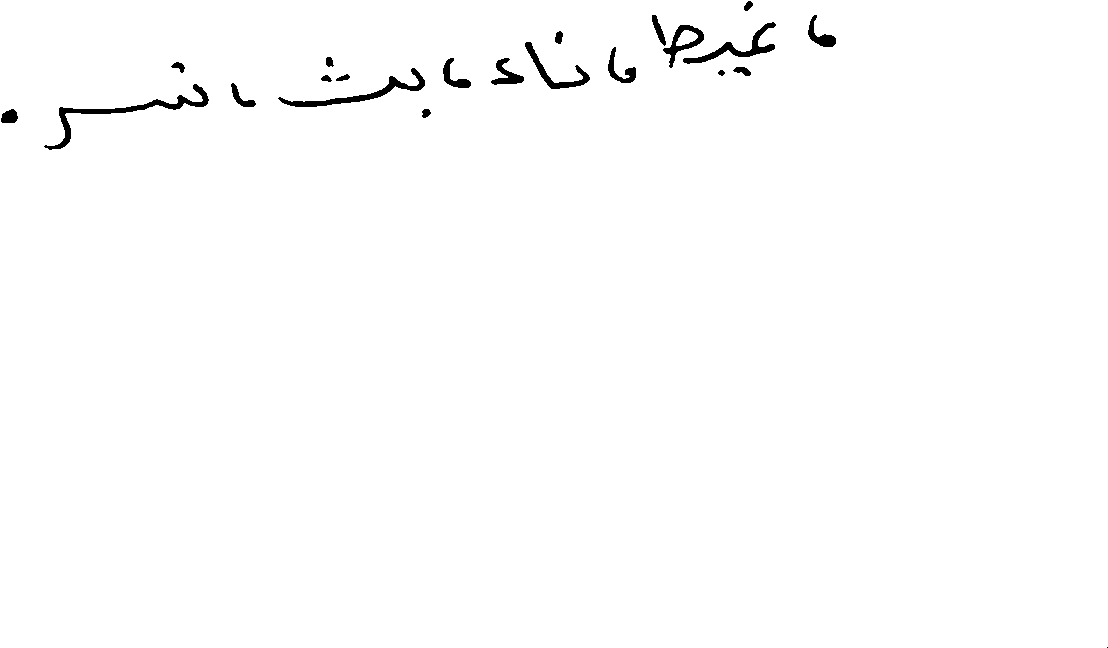 ، غيط ، ناء ، بث ، نسر .